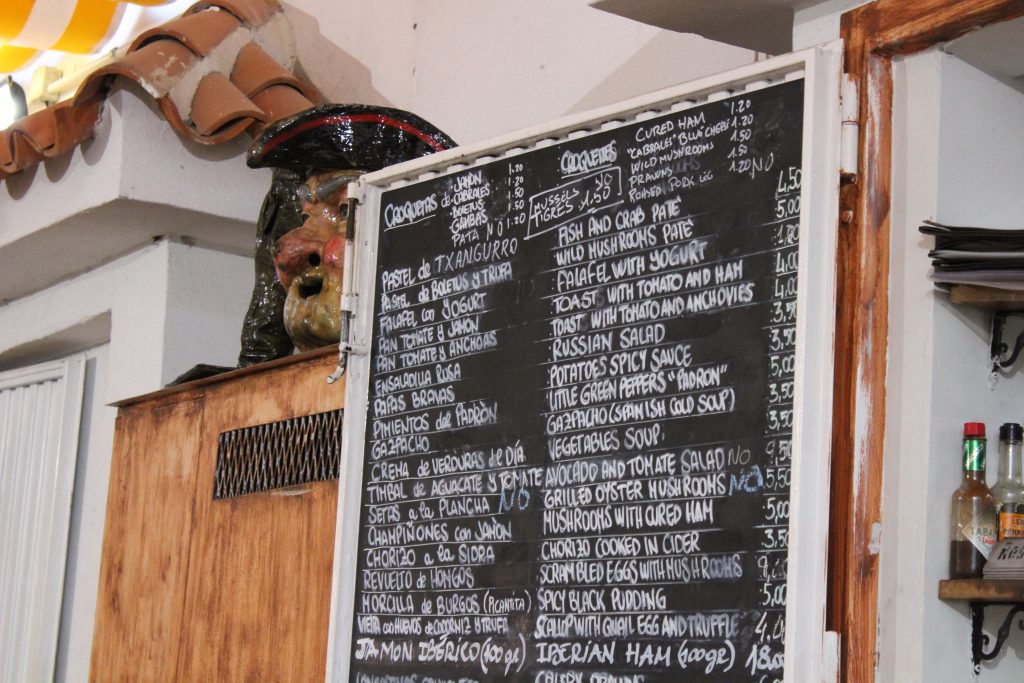 CROQUETAS de JAMÓN 1.20
CABRALES 1.20
BOLETUS 1.50
GAMBAS 1.50
PATA NO 1.20
MUSSELS NO
TIGRES 1.50
CROQUETTES CURED HAM 1.20
"CABRALES" BLUE CHEESE 1.20
WILD MUSHROOMS 1.50
PRAWNS 1.50
PORK LEG 1.20 NO
PASTEL de TXANGURRO FISH AND CRAB PATÉ 4.50
PASTEL de BOLETUS Y TRUFA WILD MUSHROOMS PATÉ 5,00
FALAFEL con YOGURT FALAFEL WITH YOGURT
PAN TOMATE Y JAMÓN TOAST WITH TOMATO AND HAM 4,00
PAN TOMATE Y ANCHOAS TOAST WITH TOMATO AND ANCHOVIES 4,00
ENSALADILLA RUSA RUSSIAN SALAD 3,50
PAPAS BRAVAS POTATOES SPICY SAUCE 3,50
PIMIENTOS de PADRÓN LITTLE GREEN PEPPERS "PADRON" 5,00
GAZPACHO GAZPACHO (SPANISH COLD SOUP) 3,50
CREMA de VERDURAS de DÍA VEGETABLES SOUP 3,50
TIMBAL de AGUACATE Y TOMATE AVOCADO AND TOMATE SALAD NO 9,50
SETAS a la PLANCHA NO GRILLED OYSTER MUSHROOMS NO 5,50
CHAMPIÑONES con JAMÓN MUSHROOMS WITH CURED HAM 5,00
CHORIZO a la SIDRA CHORIZO COOKED IN CIDER 3,50
REVUELTO de HONGOS SCRAMBLED EGGS WITH MUSHROOMS
MORCILLA de BURGOS (PICANTITA) SPICY BLACK PUDDING 5,00
VIEIRA con HUEVOS de CODORNIZ Y TRUFA SCALLOP WITH QUAIL EGG AND TRUFFLE
JAMON IBÉRICO (100 gr) IBERIAN HAM (100 gr) 18,00
TABA